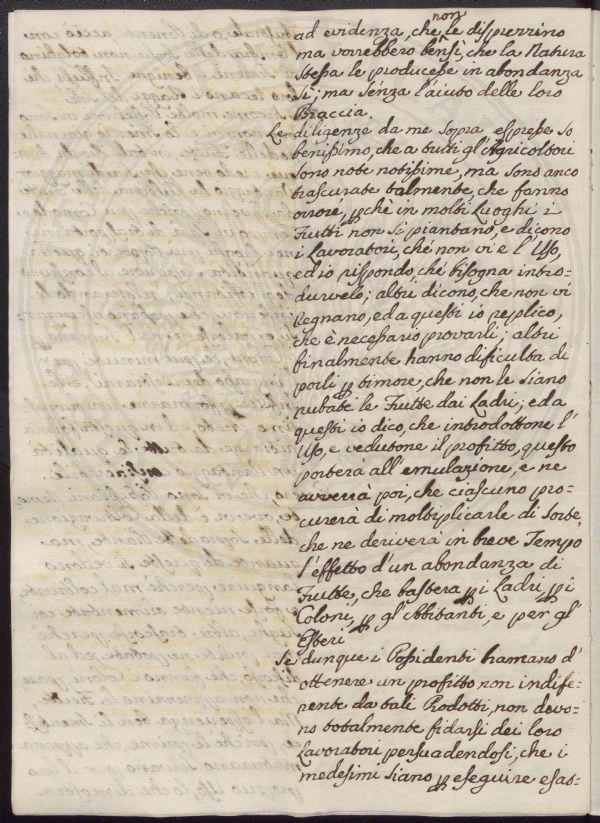 ad evidenza, che non le disprezzino
ma vorrebbero bensì, che la Natura
stessa le producesse in abondanza
sì; ma senza l'aiuto delle loro
Braccia.
Le diligenze da me sopra espresse so
benissimo, che a tutti gl'Agricoltori
sono note notissime, ma sono anco
trascurate talmente, che fanno
orrore, pchè in molti Luoghi i
Frutti non si piantano, e dicono
i Lavoratori, chè non vi è l'Uso,
ed io rispondo, chè bisogna intro-
durvelo; altri dicono, che non vi
Regnano, ed a questi io replico,
che è necessario provarli; altri
finalmente hanno dificulta di
porli p timore, che non le siano
rubate le Frutte dai Ladri; ed a
questi io dico, che introdottone l'
Uso, e vedutone il profitto, questo
porterà all'emulazione, e ne
avverrà poi, che ciascuno pro-
curerà di moltiplicarle di sorte,
che ne deriverà in breve Tempo
l'effetto d'un abondanza di
Frutte, che basterà p i Ladri, p i
Coloni, p gl'Abitanti, e per gl'
Esteri
Se dunque i Possidenti bramano d'
ottenere un profitto non indife-
rente da tali Prodotti non devo-
no totalmente fidarsi dei loro
Lavoratori persuadendosi, che i
medesimi siano p eseguire esat-